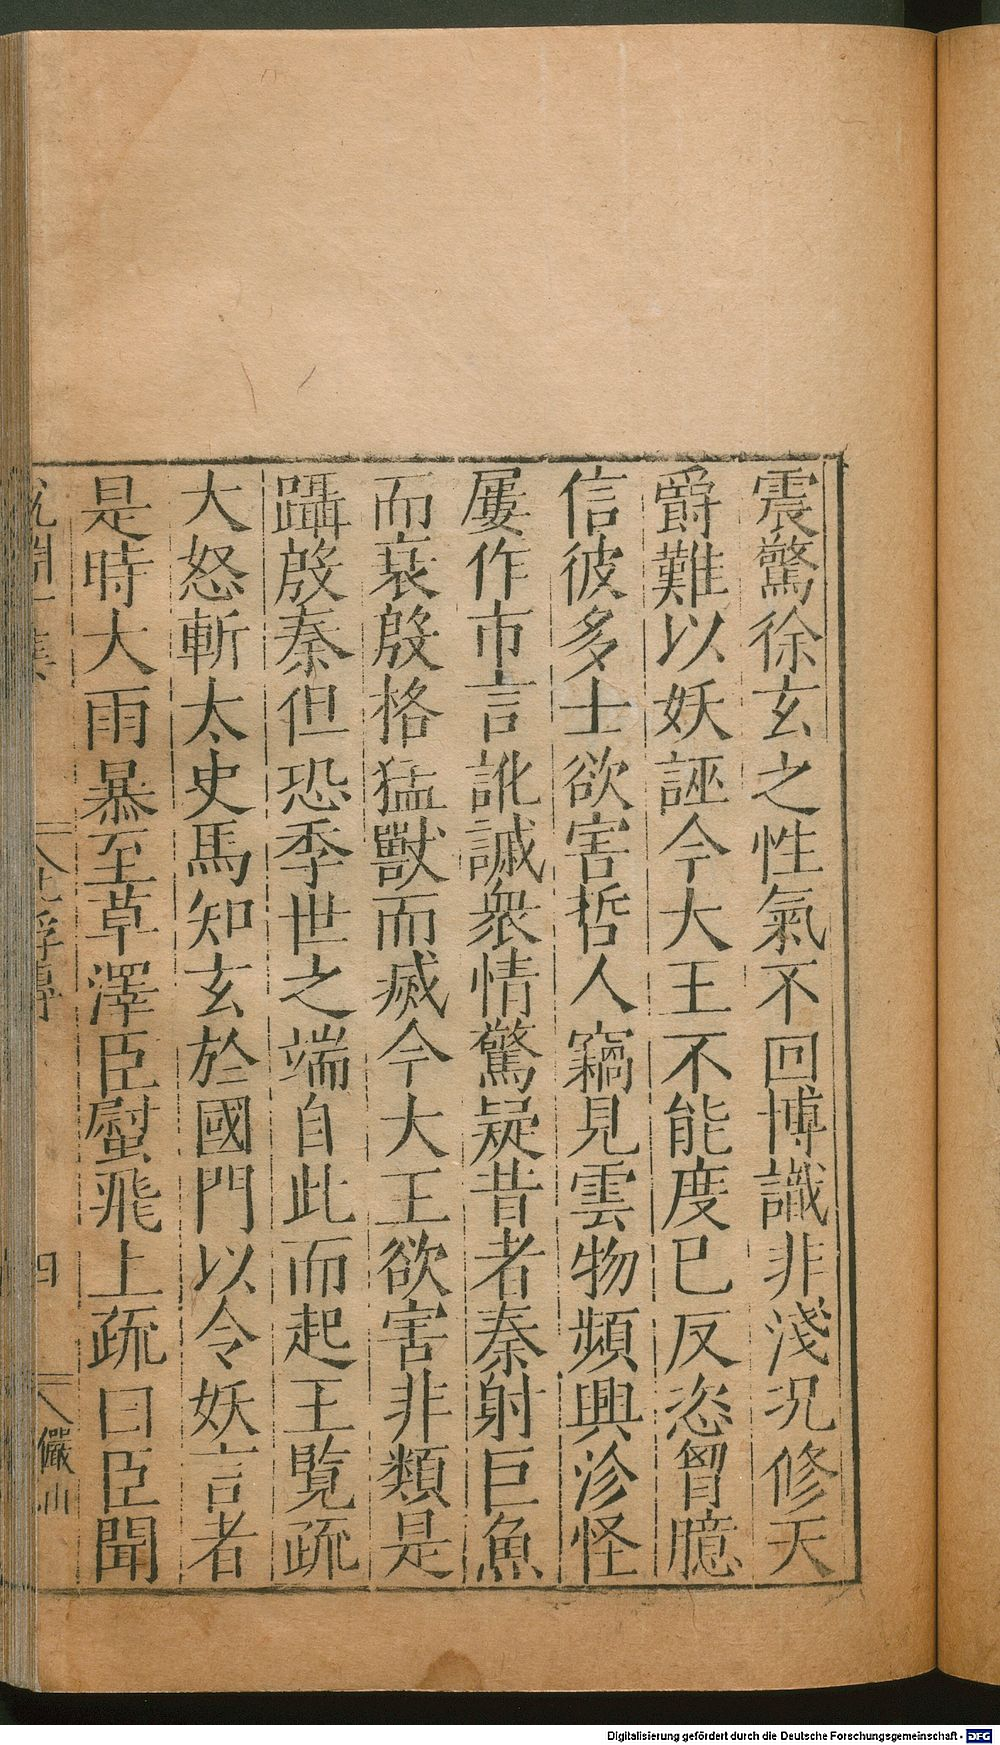 震驚徐玄之性氣不回博識非淺況修天
爵難以妖誣今大王不能度已反恣胷臆
信彼多士欲害哲人竊見雲物頻興沴怪
屢作市言訛讖衆情驚疑昔者秦射巨魚
而衰殷格猛獸而滅今大王欲害非類是
躡殷秦但恐季世之端自此而起王覽疏
大怒斬太史馬知玄於國門以令妖言者
是時大雨暴至草澤臣螱飛上疏曰臣聞
四
儼山
Digitalisierung gefördert durch die Deutsche Forschungsgemeinschaft - DFG